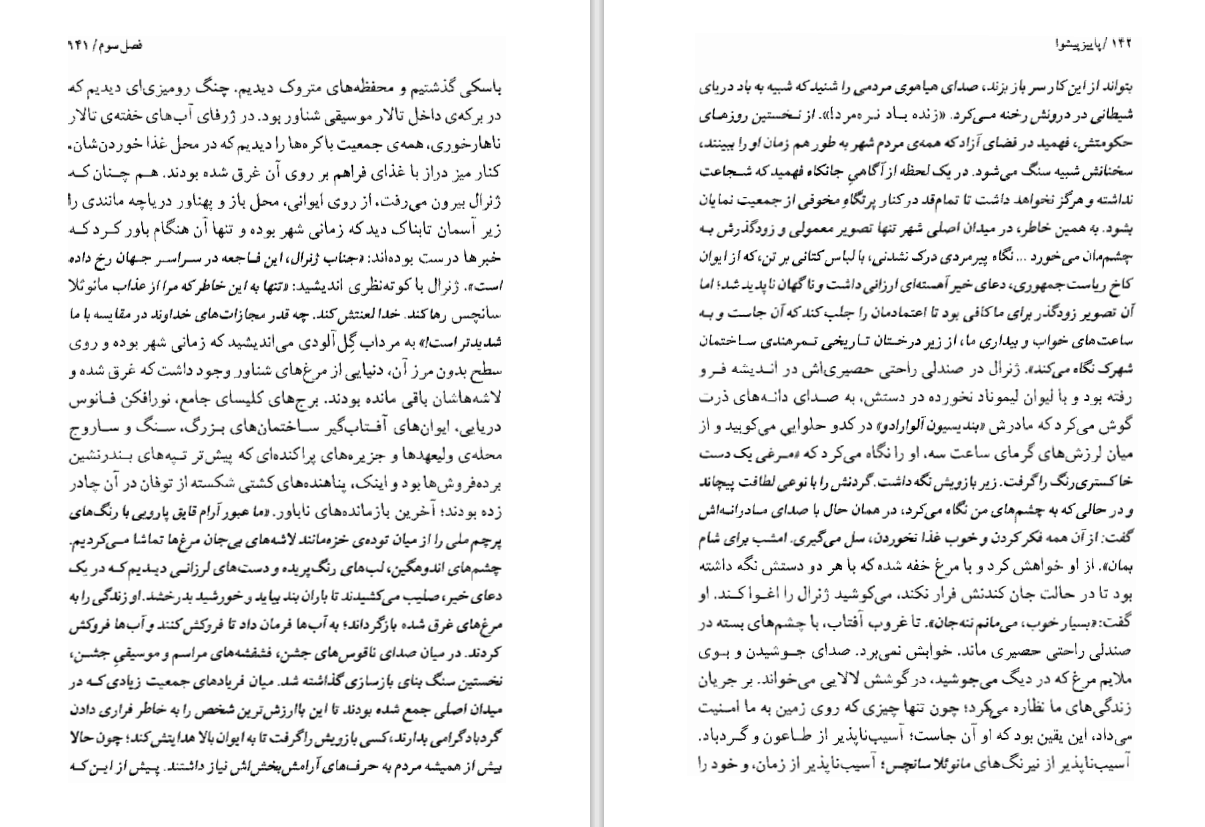 فصل سوم/ ۱۴۱
باسکی گذشتیم و محفظه‌های متروک دیدیم. چنگ رومیزی‌ای دیدیم که
در برکه‌ی داخل تالار موسیقی شناور بود. در ژرفای آب‌های خفته‌ی تالار
ناهارخوری، همه‌ی جمعیت باکره‌ها را دیدیم که در محل غذا خوردن‌شان،
کنار میز دراز با غذای فراهم بر روی آن غرق شده بودند. هم چنان کـه
ژنرال بیرون می‌رفت، از روی ایوانی، محل باز و پهناور دریاچه مانندی را
زیر آسمان تابناک دید که زمانی شهر بوده و تنها آن هنگام باور کـرد کـه
خبرها درست بوده‌اند: «جناب ژنرال، این فـاجعه در سـراسـر جـهان رخ داده
است». ژنرال با کوته‌نظری اندیشید: «تنها به این خاطر که مرا از عذاب مانوئلا
سانچس رها کند. خدا لعنتش کند. چه قدر مجازات‌های خداوند در مقایسه با ما
شدیدتر است!» به مرداب گِل‌آلودی می‌اندیشید که زمانی شهر بوده و روی
سطح بدون مرز آن، دنیایی از مرغ‌های شناور وجود داشت که غرق شده و
لاشه‌هاشان باقی مانده بودند. برج‌های کلیسای جامع، نورافکن فـانوس
دریایی، ایوان‌های آفتـاب‌گیر ساختمان‌های بـزرگ، سـنگ و سـاروج
محله‌ی ولیعهدها و جزیره‌های پراکنده‌ای که پیش‌تر تـپه‌های بـندرنشین
برده‌فروش‌ها بود و اینک، پناهنده‌های کشتی شکسته از توفان در آن چادر
زده بودند؛ آخرین بازمانده‌های ناباور. «ما عبور آرام قایق پارویی با رنگ‌های
پرچم ملی را از میان توده‌ی خزه‌مانند لاشه‌های بی‌جان مرغ‌ها تماشا مـی‌کردیم.
چشم‌های اندوهگین، لب‌های رنگ‌پریده و دست‌های لرزانـی دیـدیم کـه در یک
دعای خیر، صلیب می‌کشیدند تا باران بند بیاید و خورشید بدرخشد. او زندگی را به
مرغ‌های غرق شده بازگرداند؛ به آب‌ها فرمان داد تا فروکش کنند و آب‌ها فروکش
کردند. در میان صدای ناقوس‌های جشن، فشفشه‌های مراسم و موسیقیِ جشـن،
نخستین سنگ بنای بازسازی گذاشته شد. میان فریادهای جمعیت زیادی کـه در
میدان اصلی جمع شده بودند تا این باارزش‌ترین شخص را به خاطر فراری دادن
گردباد گرامی بدارند، کسی بازویش را گرفت تا به ایوان بالا هدایتش کند؛ چون حالا
بیش از همیشه مردم به حرف‌های آرامش‌بخش‌اش نیاز داشتند. پـیش از ایـن کـه
۱۴۲ /پاییز پیشوا
بتواند از این کار سر باز بزند، صدای هیاهوی مردمی را شنید که شبیه به باد دریای
شیطانی در درونش رخنه مـی‌کرد. «زنده بـاد نـره‌مرد!». از نـخستین روزهـای
حکومتش، فهمید در فضای آزاد که همه‌ی مردم شهر به طور هم زمان او را ببینند،
سخنانش شبیه سنگ می‌شود. در یک لحظه از آگاهیِ جانکاه فهمید که شـجاعت
نداشته و هرگز نخواهد داشت تا تمام‌قد در کنار پرتگاهِ مخوفی از جمعیت نمایان
بشود. به همین خاطر، در میدان اصلی شهر تنها تصویر معمولی و زودگذرش بـه
چشم‌مان می‌خورد ... نگاه پیرمردی درک نشدنی، با لباس کتانی بر تن، که از ایوان
کاخ ریاست جمهوری، دعای خیر آهسته‌ای ارزانی داشت و ناگهان ناپدید شد؛ اما
آن تصویر زودگذر برای ما کافی بود تا اعتمادمان را جلب کند که آن جاست و بـه
ساعت‌های خواب و بیداری ما، از زیر درخـتان تـاریخی تـمرهندی سـاختمان
شهرک نگاه می‌کند». ژنرال در صندلی راحتی حصیری‌اش در انـدیشه فـرو
رفته بود و با لیوان لیموناد نخورده در دستش، به صـدای دانـه‌های ذرت
گوش می‌کرد که مادرش «بندیسیون آلوارادو» در کدو حلوایی می‌کوبید و از
میان لرزش‌های گرمای ساعت سه، او را نگاه می‌کرد که «مـرغی یک دست
خاکستری‌رنگ را گرفت. زیر بازویش نگه داشت. گردنش را با نوعی لطافت پیچاند
و در حالی که به چشم‌های من نگاه می‌کرد، در همان حال با صدای مـادرانـه‌اش
گفت: از آن همه فکر کردن و خوب غذا نخوردن، سل می‌گیری. امشب برای شام
بمان». از او خواهش کرد و با مرغ خفه شده که با هر دو دستش نگه داشته
بود تا در حالت جان کندنش فرار نکند، می‌کوشید ژنرال را اغـوا کـند. او
گفت: «بسیار خوب، می‌مانم ننه‌جان». تا غروب آفتاب، با چشم‌های بسته در
صندلی راحتی حصیری ماند. خوابش نمی‌برد. صدای جـوشیدن و بـوی
ملایم مرغ که در دیگ می‌جوشید، در گوشش لالایی می‌خواند. بر جریان
زندگی‌های ما نظاره می‌کرد؛ چون تنها چیزی که روی زمین به ما امـنیت
می‌داد، این یقین بود که او آن جاست؛ آسیب‌ناپذیر از طـاعون و گـردباد.
آسیب‌ناپذیر از نیرنگ‌های مانوئلا سانچس؛ آسیب‌ناپذیر از زمان، و خود را